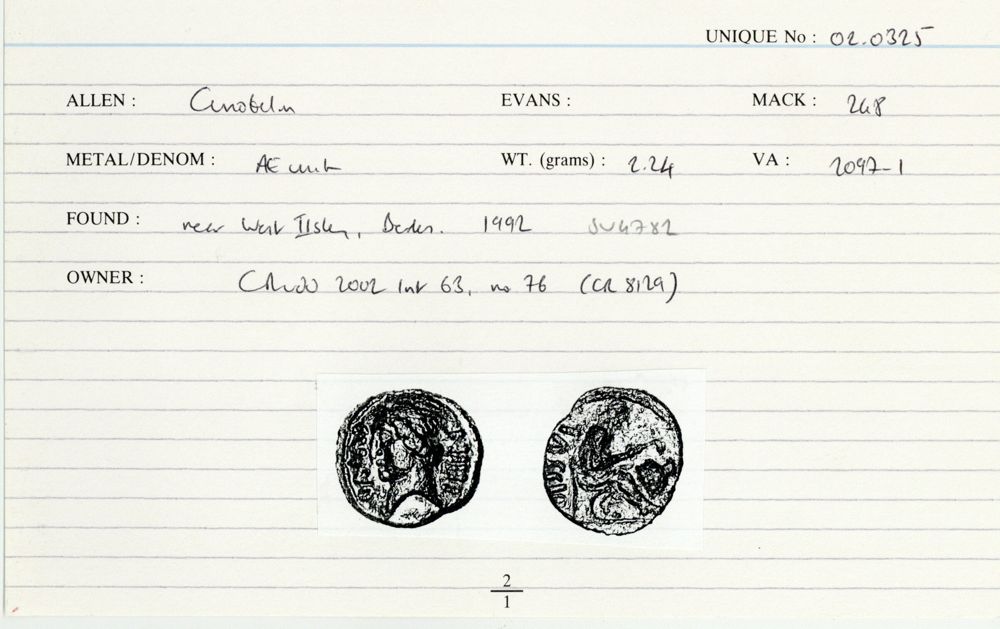 UNIQUE No : 02.0325
ALLEN : Cunobelin EVANS : MACK : 248
METAL/DENOM : AE unit WT. (grams) : 2.24 VA : 2097-1
FOUND : near West Ilsley, Berks. 1992 SU4782
OWNER : 2002 63, no 76 (CR 8129)
2
1